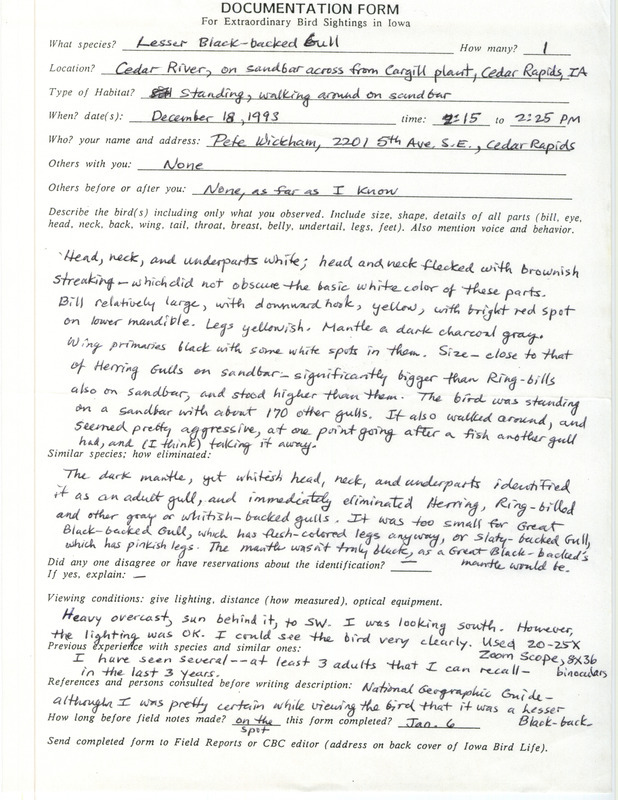 DOCUMENTATION FORM
For Extraordinary Bird Sightings in Iowa
What species? Lesser Black-backed Gull How many? 1
Location? Cedar River, on sandbar across from Cargill plant, Cedar Rapids, IA
Type of Habitat? Standing, walking around on sandbar
When? date(s): December 18, 1993 time: 2:15 to 2:25 PM
Who? your name and address: Pete Wickham, 2201 5th Ave. S.E., Cedar Rapids
Others with you: None
Others before or after you: None, as far as I know
Describe the bird(s) including only what you observed. Include size, shape, details of all parts (bill, eye,
head, neck, back, wing, tail, throat, breast, belly, undertail, legs, feet). Also mention voice and behavior.
Head, neck, and underparts white; head and neck flecked with brownish
streaking - which did not obscure the basic white color of these parts.
Bill relatively large, with downward hook, yellow, with bright red spot
on lower mandible. Legs yellowish. Mantle a dark charcoal gray.
Wing primaries black with some white spots in them. Size - close to that
of Herring Gulls on sandbar - significantly bigger than Ring-bills
also on sandbar, and stood higher than them. The bird was standing
on a sandbar with about 170 other gulls. It also walked around, and
seemed pretty aggressive, at one point going after a fish another gull
had, and (I think) taking it away.
Similar species; how eliminated:
The dark mantle, yet whitish head, neck, and underparts identified
it as an adult gull, and immediately eliminated Herring, Ring-billed
and other gray or whitish-backed gulls. It was too small for Great
Black-backed Gull, which has flesh-colored legs anyway, or Slaty-backed Gull,
which has pinkish legs. The mantle wasn't truly black, as a Great Black-backed's
mantle would be.
Did any one disagree or have reservations about the identification? —
If yes, explain: —
Viewing conditions: give lighting, distance (how measured), optical equipment.
Heavy overcast, sun behind it, to SW. I was looking south. However,
the lighting was OK. I could see the bird very clearly. Used 20-25X
Zoom Scope, 8X36
binoculars
Previous experience with species and similar ones:
I have seen several -- at least 3 adults that I can recall -
in the last 3 years.
References and persons consulted before writing description: National Geographic Guide -
although I was pretty certain while viewing the bird that it was a Lesser
Black-back
How long before field notes made? on the spot this form completed? Jan. 6
Send completed form to Field Reports or CBC editor (address on back cover of Iowa Bird Life).